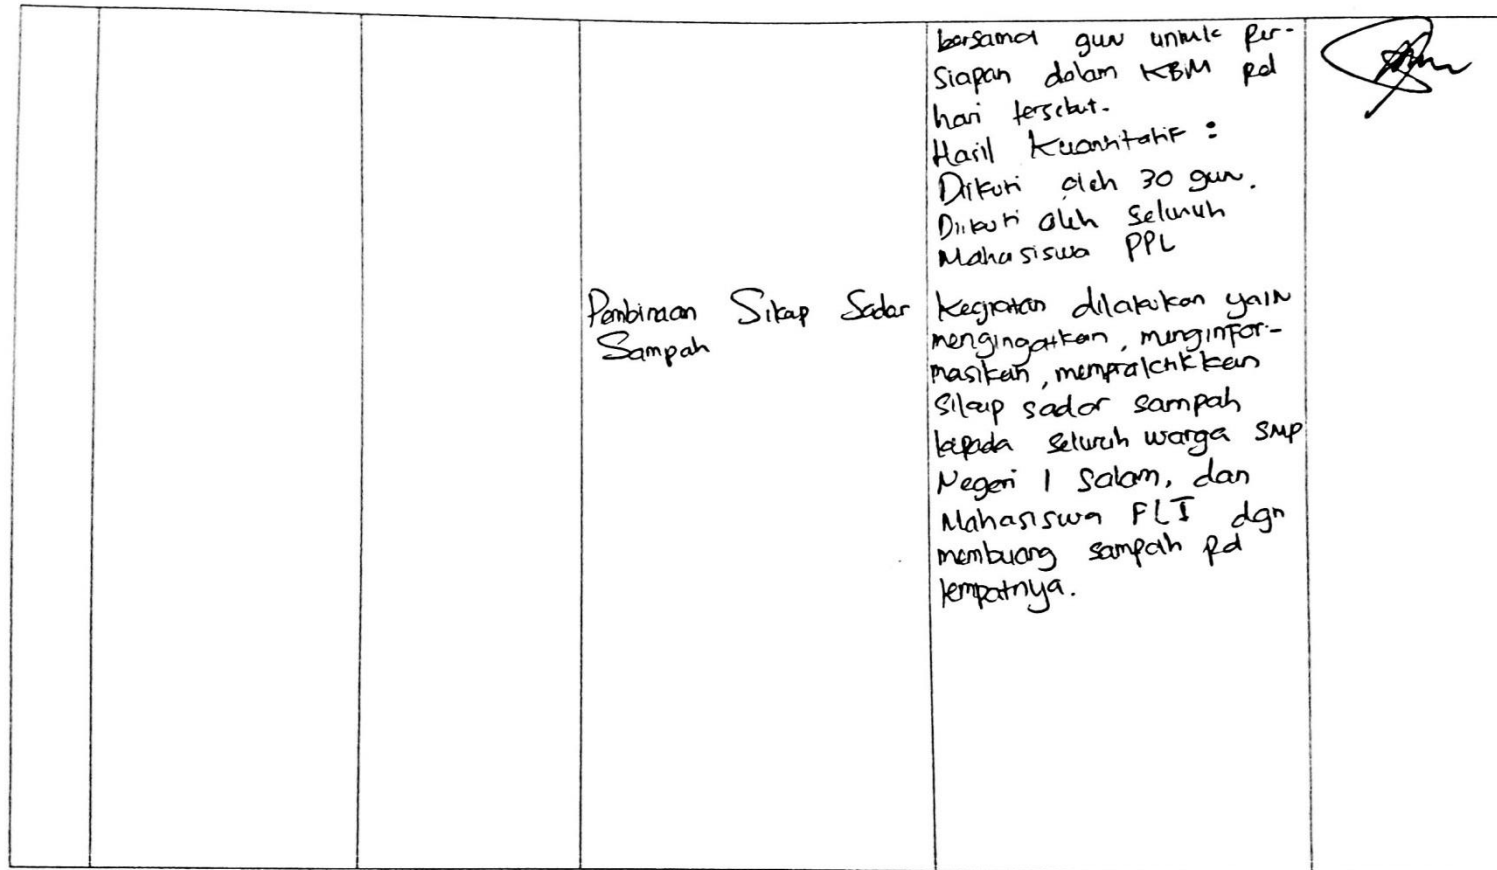 bersama guru untuk per-
siapan dalam KBM pd
hari tersebut.
Hasil Kuantitatif :
Diikuti oleh 30 guru.
Diikuti oleh seluruh
Mahasiswa PPL
Pembinaan Sikap Sadar
Sampah
Kegiatan dilakukan yaitu
mengingatkan, menginfor-
masikan, mempraktikkan
sikap sadar sampah
kepada seluruh warga SMP
Negeri 1 Salam, dan
Mahasiswa PLT dgn
membuang sampah pd
tempatnya.